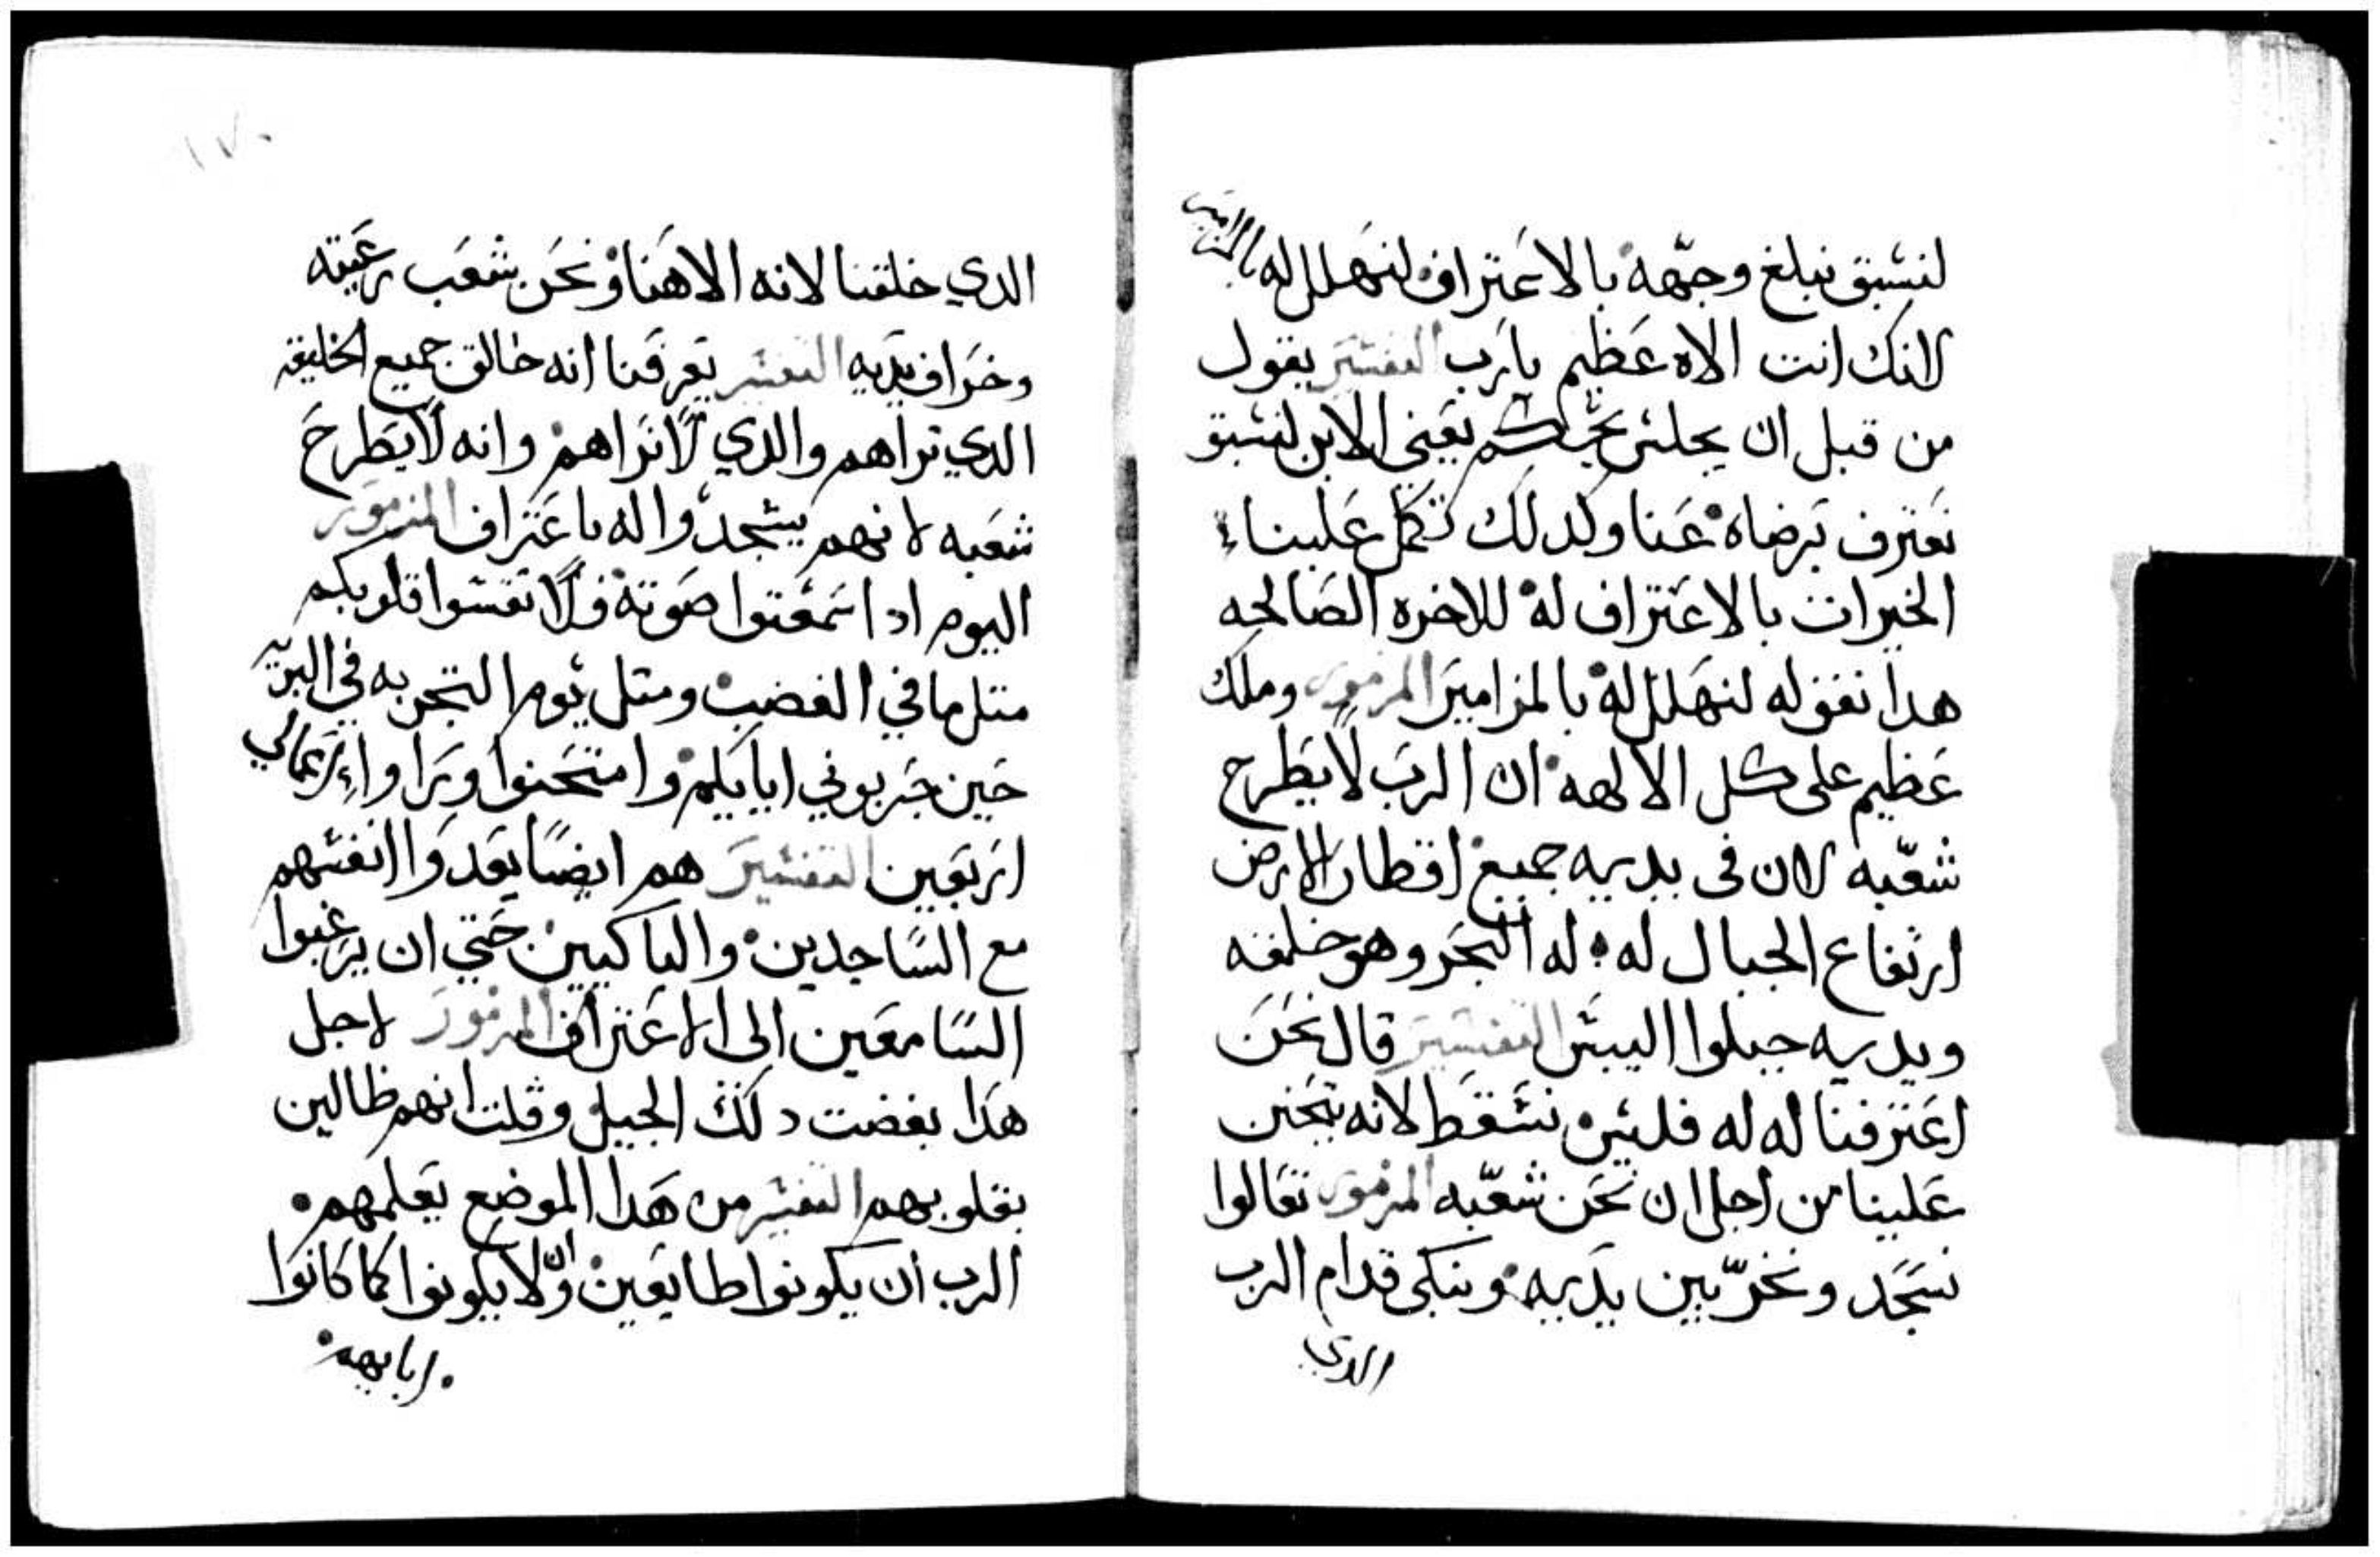 لنسبق نبلغ وجهه بالاعتراف لنهلل له بالمزامير
لانك انت الاه عظيم يارب التفسير يقول
من قبل ان يجلس يحكم يعني الابن لنسبق
نعترف برضاه عنا وكدلك تكمل علينا
الخيرات بالاعتراف له للاخره الصالحه
هدا نفقوله لنهلل له بالمزامير المزمور وملك
عظيم على كل الالهه ان الرب لا يطرح
شعبه لان في يديه جميع اقطار الارض
ارتفاع الجبال له له البحر وهو خلقه
ويديه جبلوا اليبس التفسير قال نحن
اعترفنا له له فليس نسقط لانه يتحنن
علينا من اجل ان نحن شعبه المزمور تعالوا
نسجد ونخر بين يديه ونبكي قدام الرب
الدي
١٧٠
الدي خلقنا لانه الاهنا ونحن شعب رعيته
وخراف يديه التفسير يعرفنا انه خالق جميع الخليقه
الدي نراهم والدي لا نراهم وانه لا يطرح
شعبه لانهم يسجدوا له باعتراف المزمور
اليوم ادا سمعتوا صوته فلا تقسوا قلوبكم
متل ما في الغضب ومتل يوم التجربه في البريه
حين جربوني ابايكم وامتحنوا وراوا اعمالي
اربعين التفسير هم ايضا يعدوا انفسهم
مع الساجدين والباكيين حتي ان يرغبوا
السامعين الى الاعتراف المزمور لاجل
هدا بغضت دلك الجيل وقلت انهم ظالين
بقلوبهم التفسير من هدا الموضع يعلمهم
الرب ان يكونوا طايعين وان لا يكونوا كما كانوا
ابايهم